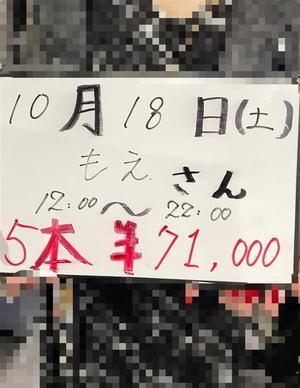 10月18日(土)
もえさん
12:00〜22:00
5本 ¥71,000